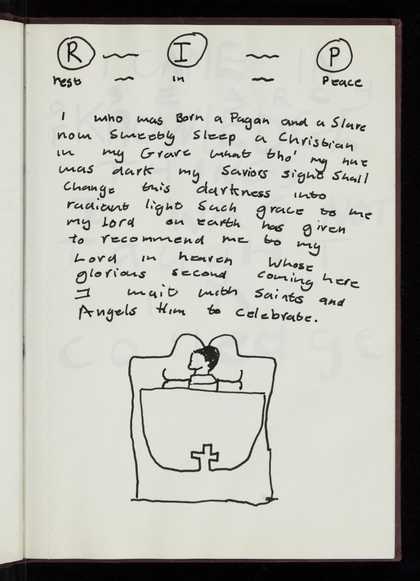 R ~~ I ~~ P
rest ~ in ~ Peace
I who was Born a Pagan and a Slave
now Sweetly Sleep a Christian
in my Grave what tho' my hue
was dark my Saviors sight Shall
Change this darkness into
radiant light Such grace to me
my Lord on earth has given
to recommend me to my
Lord in heaven Whose
glorious second coming here
I wait with Saints and
Angels Him to celebrate.